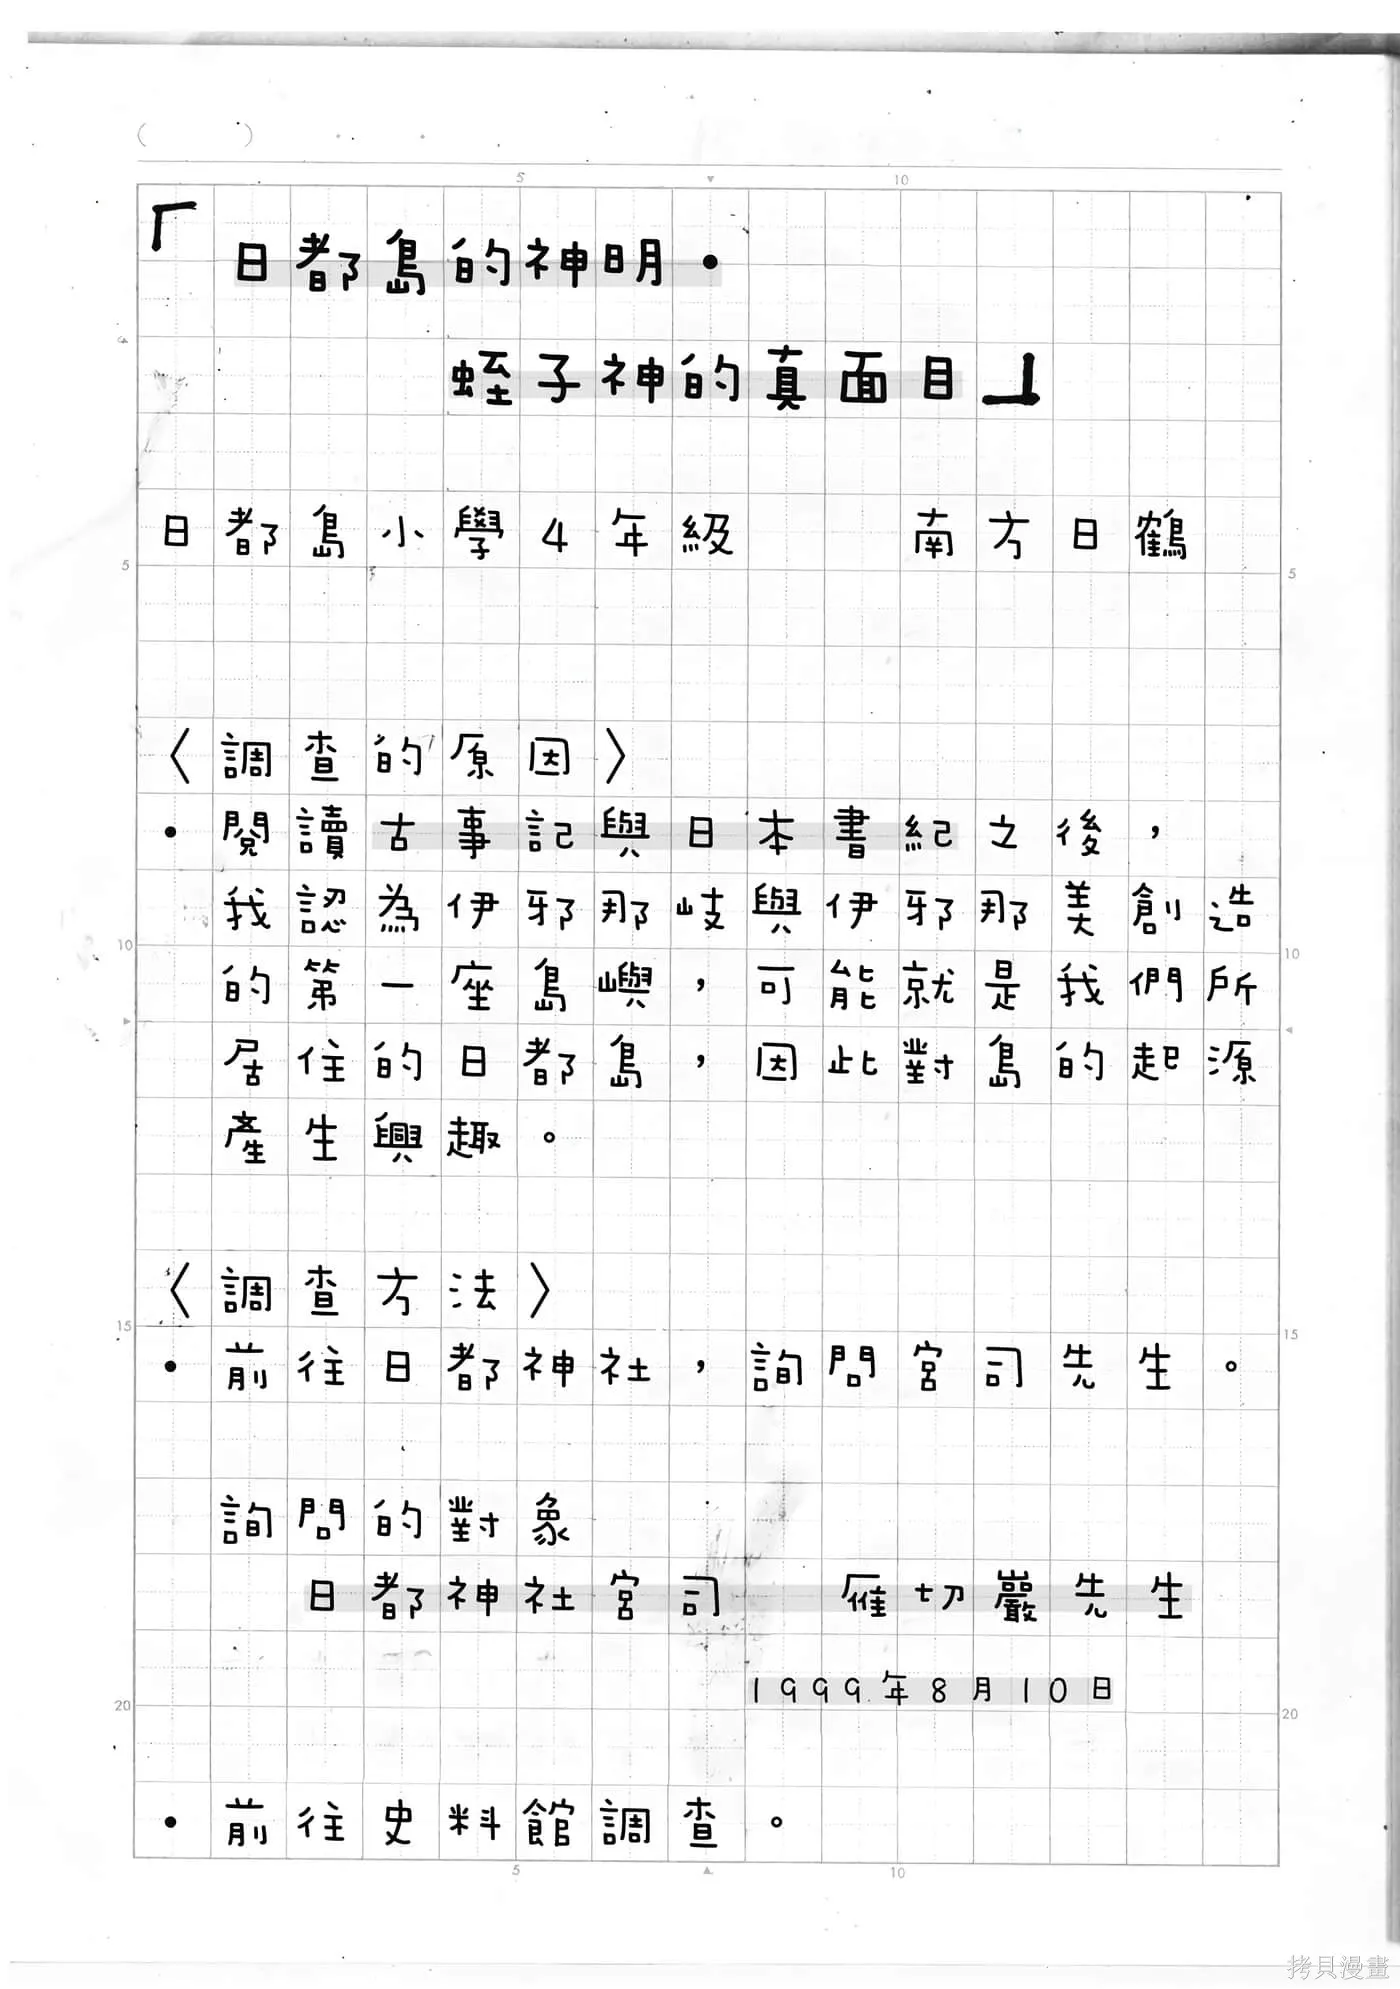 （　　）
5 10
「日都島的神明・
蛭子神的真面目」
日都島小學4年級　南方日鶴
5 5
〈調查的原因〉
・閱讀古事記與日本書紀之後，
我認為伊邪那岐與伊邪那美創造
10 10
的第一座島嶼，可能就是我們所
居住的日都島，因此對島的起源
產生興趣。
〈調查方法〉
15 15
・前往日都神社，詢問宮司先生。
詢問的對象
日都神社宮司　雁切巖先生
1999年8月10日
20 20
・前往史料館調查。
5 10
拷貝漫畫